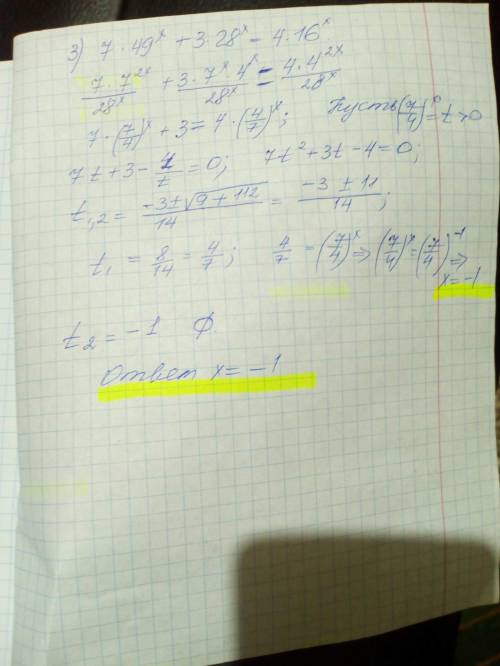 3) 7·49ˣ + 3·28ˣ = 4·16ˣ
7·7²ˣ/28ˣ + 3·7ˣ·4ˣ/28ˣ = 4·4²ˣ/28ˣ
7·(7/4)ˣ + 3 = 4·(4/7)ˣ; Пусть (7/4)ˣ = t > 0
7t + 3 - 4/t = 0; 7t² + 3t - 4 = 0;
t₁,₂ = (-3 ± √(9 + 112))/14 = (-3 ± 11)/14;
t₁ = 8/14 = 4/7; 4/7 = (7/4)ˣ ⇒ (7/4)ˣ = (7/4)⁻¹ ⇒
x = -1
t₂ = -1 ∅.
Ответ x = -1